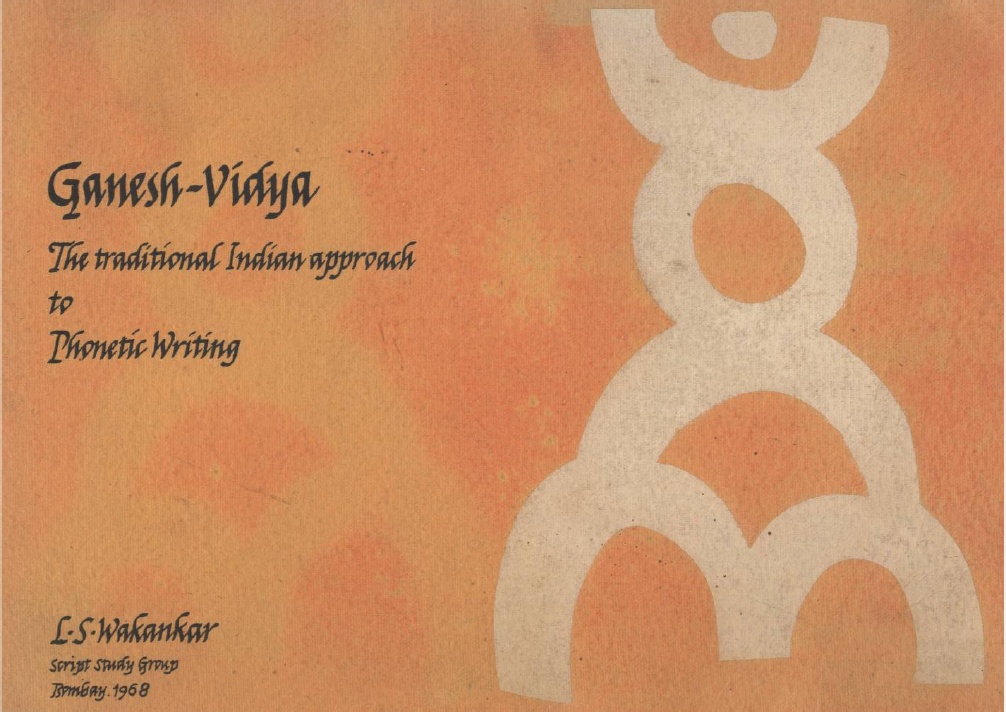 Ganesh-Vidya
The traditional Indian approach
to
Phonetic Writing
L·S·Wakankar
Script Study Group
Bombay.1968